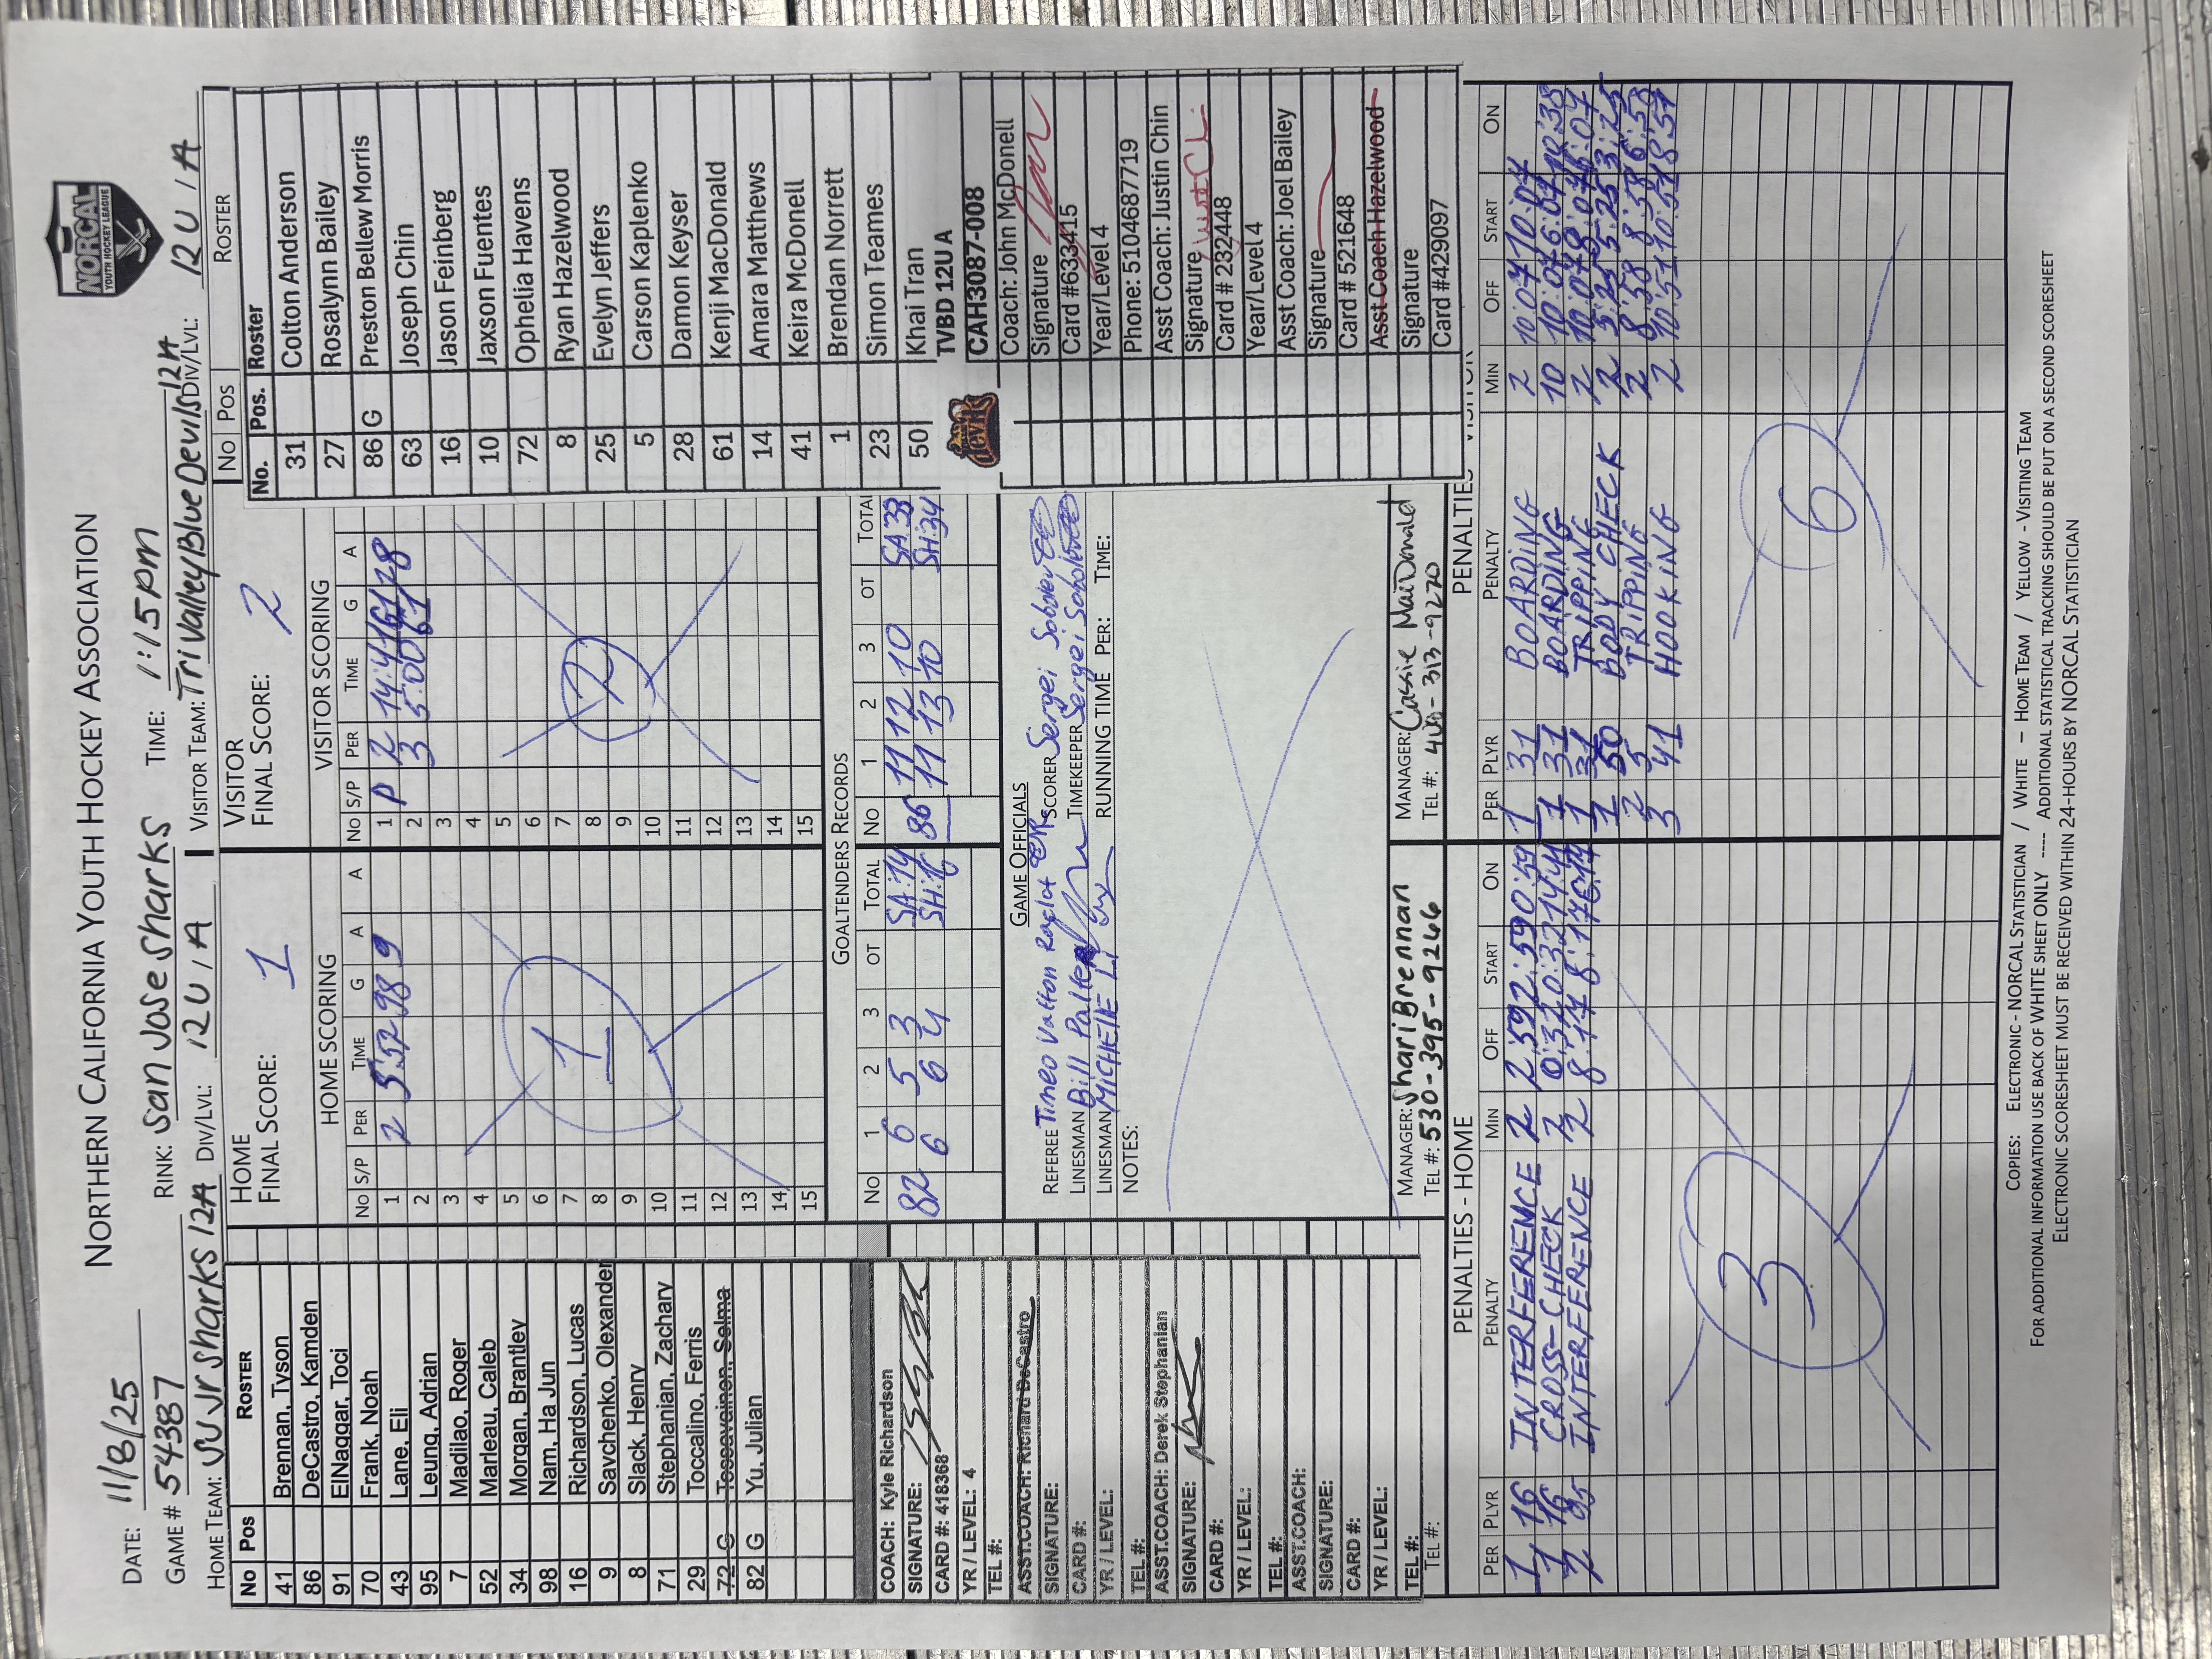 NORTHERN CALIFORNIA YOUTH HOCKEY ASSOCIATION
NORCAL
YOUTH HOCKEY LEAGUE
DATE: 11/8/25
GAME # 54387 RINK: San Jose Sharks TIME: 1:15pm
HOME TEAM: SJ Jr Sharks 12A DIV/LVL: 12U / A VISITOR TEAM: Tri Valley Blue Devils 12A DIV/LVL: 12U / A
HOME
FINAL SCORE: 1
VISITOR
FINAL SCORE: 2
No Pos ROSTER
41 Brennan, Tyson
86 DeCastro, Kamden
91 ElNaggar, Toci
70 Frank, Noah
43 Lane, Eli
95 Leung, Adrian
7 Madilao, Roger
52 Marleau, Caleb
34 Morgan, Brantley
98 Nam, Ha Jun
16 Richardson, Lucas
9 Savchenko, Olexander
8 Slack, Henry
71 Stephanian, Zachary
29 Toccalino, Ferris
72 G Tossavainen, Selma
82 G Yu, Julian
COACH: Kyle Richardson
SIGNATURE:
CARD #: 418368
YR / LEVEL: 4
TEL #:
ASST.COACH: Richard DeCastro
SIGNATURE:
CARD #:
YR / LEVEL:
TEL #:
ASST.COACH: Derek Stephanian
SIGNATURE:
CARD #:
YR / LEVEL:
TEL #:
ASST.COACH:
SIGNATURE:
CARD #:
YR / LEVEL:
TEL #:
TEL #:
HOME SCORING
No S/P PER TIME G A A
1 2 5:52 98 9
2
3
4
5
6
7
8
9
10
11
12
13
14
15
1
VISITOR SCORING
No S/P PER TIME G A
1 P 2 14:41 61 28
2 3 5:00 61
3
4
5
6
7
8
9
10
11
12
13
14
15
2
GOALTENDERS RECORDS
No 1 2 3 OT TOTAL No 1 2 3 OT TOTAL
82 6 5 3 SA:14 86 11 12 10 SA:33
6 6 4 SH:16 11 13 10 SH:34
GAME OFFICIALS
REFEREE SCORER Sergei
LINESMAN Bill TIMEKEEPER Sergei
LINESMAN MICHELLE LI RUNNING TIME PER: TIME:
NOTES:
MANAGER: Shari Brennan
TEL #: 530-395-9246
MANAGER: Cassie MacDonald
TEL #: 313-9270
No Pos ROSTER
No. Pos. Roster
31 Colton Anderson
27 Rosalynn Bailey
86 G Preston Bellew Morris
63 Joseph Chin
16 Jason Feinberg
10 Jaxson Fuentes
72 Ophelia Havens
8 Ryan Hazelwood
25 Evelyn Jeffers
5 Carson Kaplenko
28 Damon Keyser
61 Kenji MacDonald
14 Amara Matthews
41 Keira McDonell
1 Brendan Norrett
23 Simon Teames
50 Khai Tran
TVBD 12U A
DEVILS
CAH3087-008
Coach: John McDonell
Signature
Card #633415
Year/Level 4
Phone: 5104687719
Asst Coach: Justin Chin
Signature
Card # 232448
Year/Level 4
Asst Coach: Joel Bailey
Signature
Card # 521648
Asst Coach Hazelwood
Signature
Card #429097
PENALTIES - HOME
PER PLYR PENALTY MIN OFF START ON
1 16 INTERFERENCE 2 2:59 2:59 0:59
1 16 CROSS-CHECK 2 0:32 0:32
2 95 INTERFERENCE 2 8:17 8:17
3
PENALTIES VISITOR
PER PLYR PENALTY MIN OFF START ON
1 31 BOARDING 2 10:04 10:04
1 31 BOARDING 10 10:04
1 31 TRIPPING 2
1 50 BODY CHECK 2 5:25 5:25 3:25
2 5 TRIPPING 2 8:58 8:58 6:58
3 41 HOOKING 2 10:51 10:51 8:51
6
COPIES: ELECTRONIC - NORCAL STATISTICIAN / WHITE – HOME TEAM / YELLOW - VISITING TEAM
FOR ADDITIONAL INFORMATION USE BACK OF WHITE SHEET ONLY ---- ADDITIONAL STATISTICAL TRACKING SHOULD BE PUT ON A SECOND SCORESHEET
ELECTRONIC SCORESHEET MUST BE RECEIVED WITHIN 24-HOURS BY NORCAL STATISTICIAN